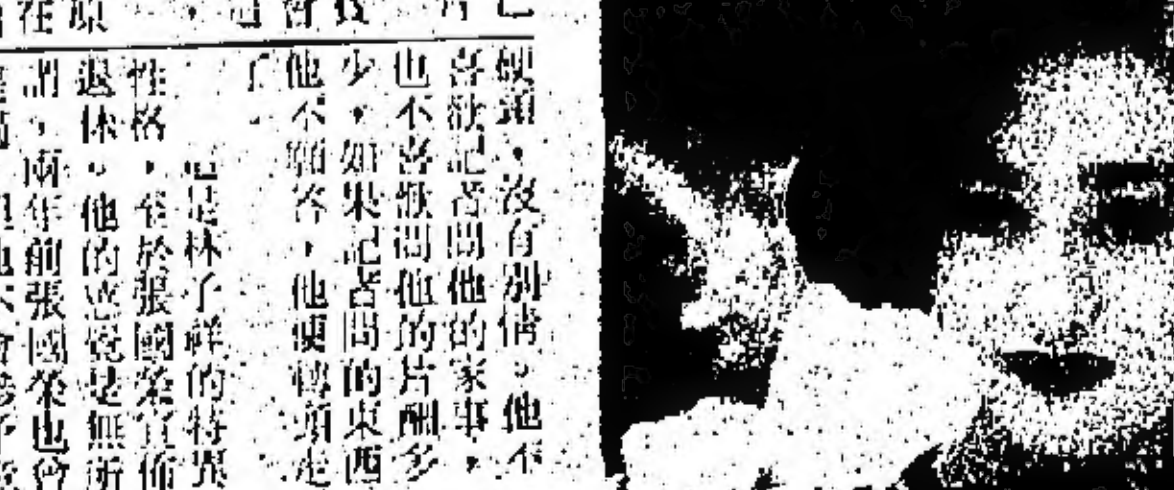 硬，沒有別情。他不
喜歡記者問他的家事，
也不喜歡問他的片酬多
少，如果記者問的東西
他不願答，他便轉頭走
了。
這是林子祥的特異
性格，至於張國榮宣佈
退休。他的感覺是無所
謂，兩年前張國榮也曾